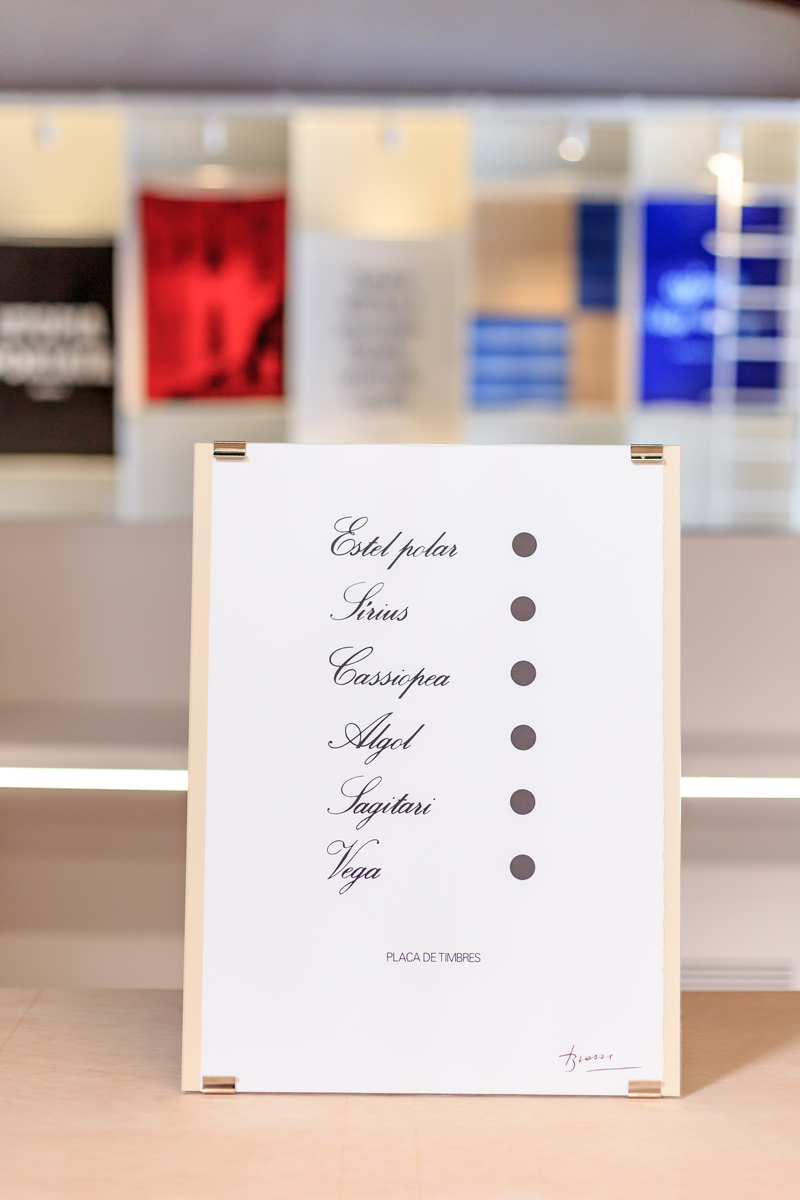 Estel polar
Sírius
Cassiopea
Algol
Sagitari
Vega
PLACA DE TIMBRES
Brossa